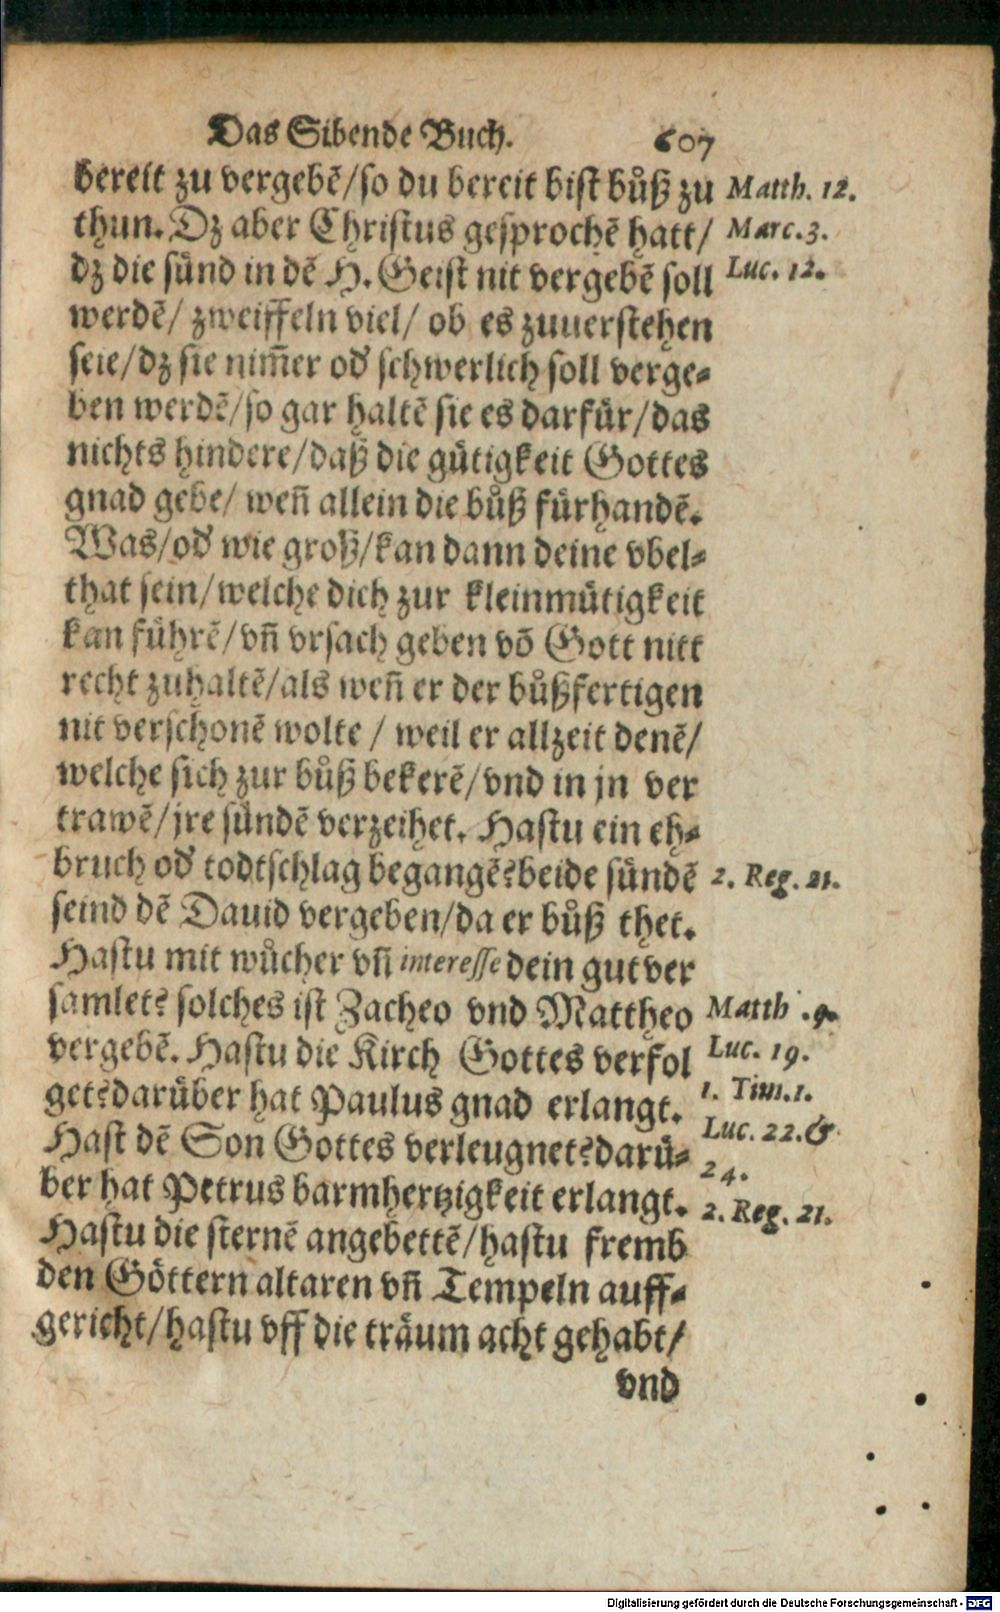 Das Sibende Buch. 607
bereit zu vergebẽ/so du bereit bist bůß zu
thun. Dz aber Christus gesprochẽ hatt/
dz die sünd in dẽ H. Geist nit vergebẽ soll
werdẽ/ zweiffeln viel/ ob es zuuerstehen
seie/dz sie nim̃er od' schwerlich soll verge-
ben werdẽ/so gar haltẽ sie es darfür/das
nichts hindere/daß die gütigkeit Gottes
gnad gebe/ weñ allein die bůß fürhandẽ.
Was/od' wie groß/kan dann deine vbel-
that sein/welche dich zur kleinmütigkeit
kan führẽ/vñ vrsach geben võ Gott nitt
recht zuhaltẽ/als weñ er der bůßfertigen
nit verschonẽ wolte / weil er allzeit denẽ/
welche sich zur bůß bekerẽ/vnd in jn ver
trawẽ/jre sündẽ verzeihet. Hastu ein eh-
bruch od' todtschlag begangẽ?beide sündẽ
seind dẽ Dauid vergeben/da er bůß thet.
Hastu mit wůcher vñ interesse dein gut ver
samlet? solches ist Zacheo vnd Mattheo
vergebẽ. Hastu die Kirch Gottes verfol
get?darüber hat Paulus gnad erlangt.
Hast dẽ Son Gottes verleugnet?darü-
ber hat Petrus barmhertzigkeit erlangt.
Hastu die sternẽ angebettẽ/hastu fremb
den Göttern altaren vñ Tempeln auff-
gericht/hastu vff die träum acht gehabt/
vnd
Matth. 12.
Marc. 3.
Luc. 12.
2. Reg. 21.
Matth. 9.
Luc. 19.
1. Tim. 1.
Luc. 22. &
24.
2. Reg. 21.
Digitalisierung gefördert durch die Deutsche Forschungsgemeinschaft - DFG